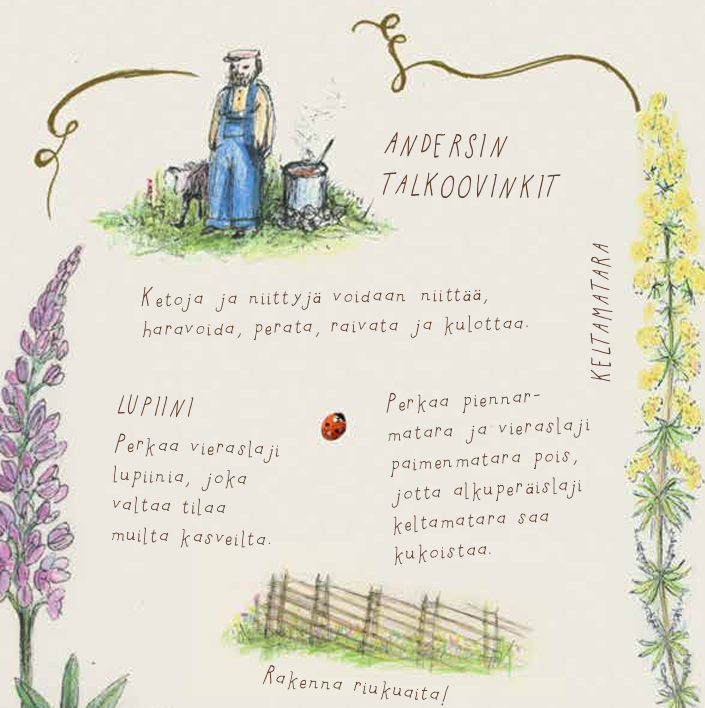 ANDERSIN
TALKOOVINKIT
Ketoja ja niittyjä voidaan niittää,
haravoida, perata, raivata ja kulottaa.
KELTAMATARA
LUPIINI
Perkaa vieraslaji
lupiinia, joka
valtaa tilaa
muilta kasveilta.
Perkaa piennar-
matara ja vieraslaji
paimenmatara pois,
jotta alkuperäislaji
keltamatara saa
kukoistaa.
Rakenna riukuaita!